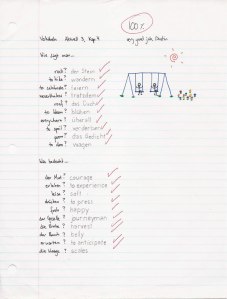 100%
Vokabeln Aktuell 3, Kap. 9 very good job,
Wie sagt man...
rock? der Stein
to hike? wandern
to celebrate? feiern
nevertheless? trotzdem
roof? das Dach
to bloom? blühen
everywhere? überall
to spoil? verderben
poem? das Gedicht
to dare? wagen
Was bedeutet...
der Mut? courage
erleben? to experience
leise? soft
drücken? to press
froh? happy
der Geselle? journeyman
die horses!
der Bauch? belly
erwarten? to anticipate
die Waage? scales